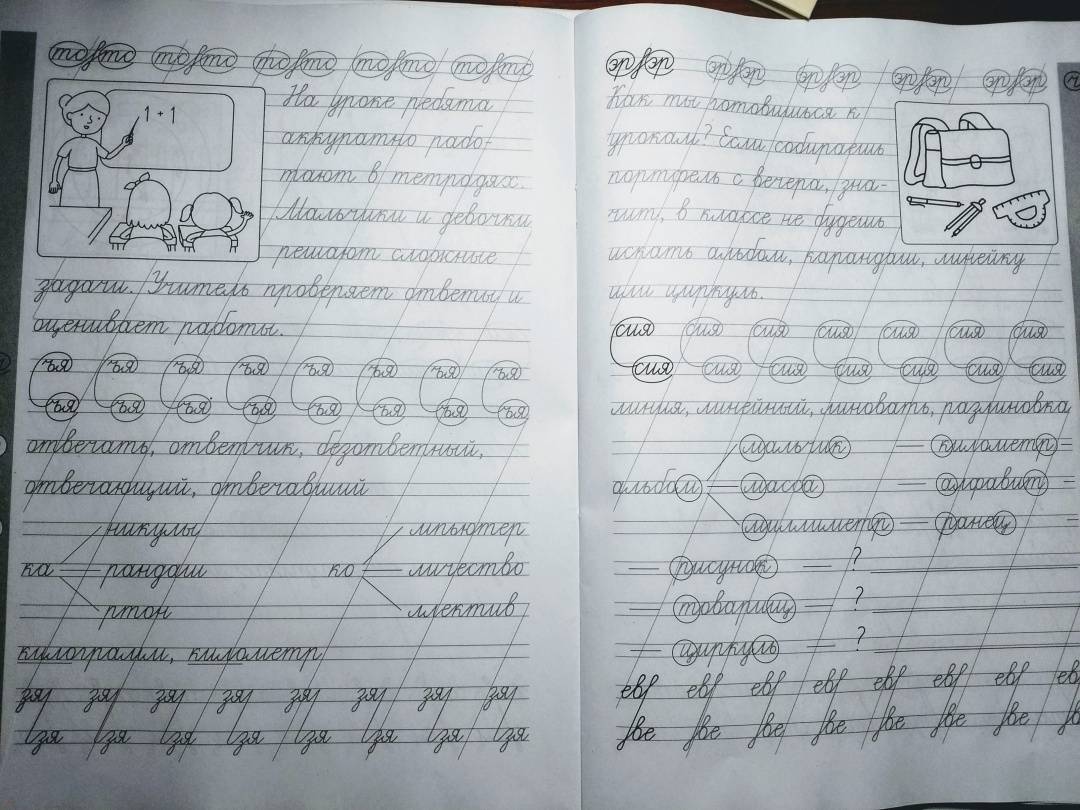 то то то то то то то то то то
1 + 1
На уроке ребята
аккуратно рабо-
тают в тетрадях.
Мальчики и девочки
решают сложные
задачи. Учитель проверяет ответы и
оценивает работы.
ъя ъя ъя ъя ъя ъя ъя ъя
ъя ъя ъя ъя ъя ъя ъя ъя
отвечать, ответчик, безответный,
отвечающий, отвечавший
никулы мпьютер
ка рандаш ко личество
ртон ллектив
килограмм, километр
зя зя зя зя зя зя зя зя
зя зя зя зя зя зя зя зя
эр эр эр эр эр эр эр эр эр эр
Как ты готовишься к
урокам? Если собираешь
портфель с вечера, зна-
чит, в классе не будешь
искать альбом, карандаш, линейку
или циркуль.
сия сия сия сия сия сия сия
сия сия сия сия сия сия сия
линия, линейный, линовать, разлиновка
мальчик — километр =
альбом масса — алфавит =
миллиметр — ранец =
— рисунок — ?
— товарищ — ?
— циркуль — ?
ев ев ев ев ев ев ев ев
ве ве ве ве ве ве ве